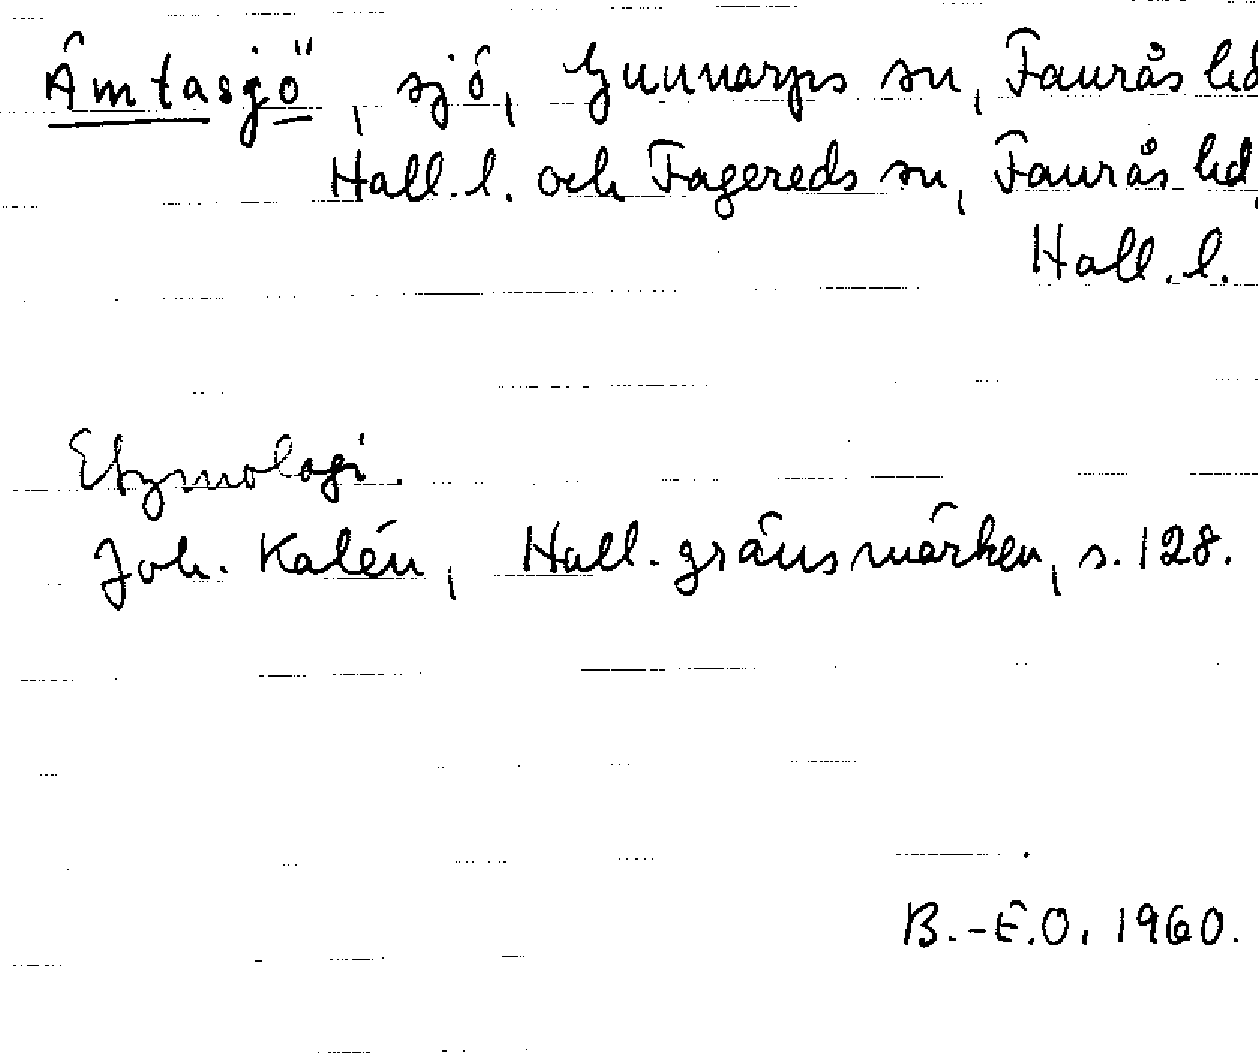 Ämtasjö, sjö, Gunnarps sn, Faurås hd
Hall. l. och Fagereds sn, Faurås hd,
Hall. l.
Etymologi.
Joh. Kalén, Hall. gränsmärken, s. 128.
B.-E.O. 1960.